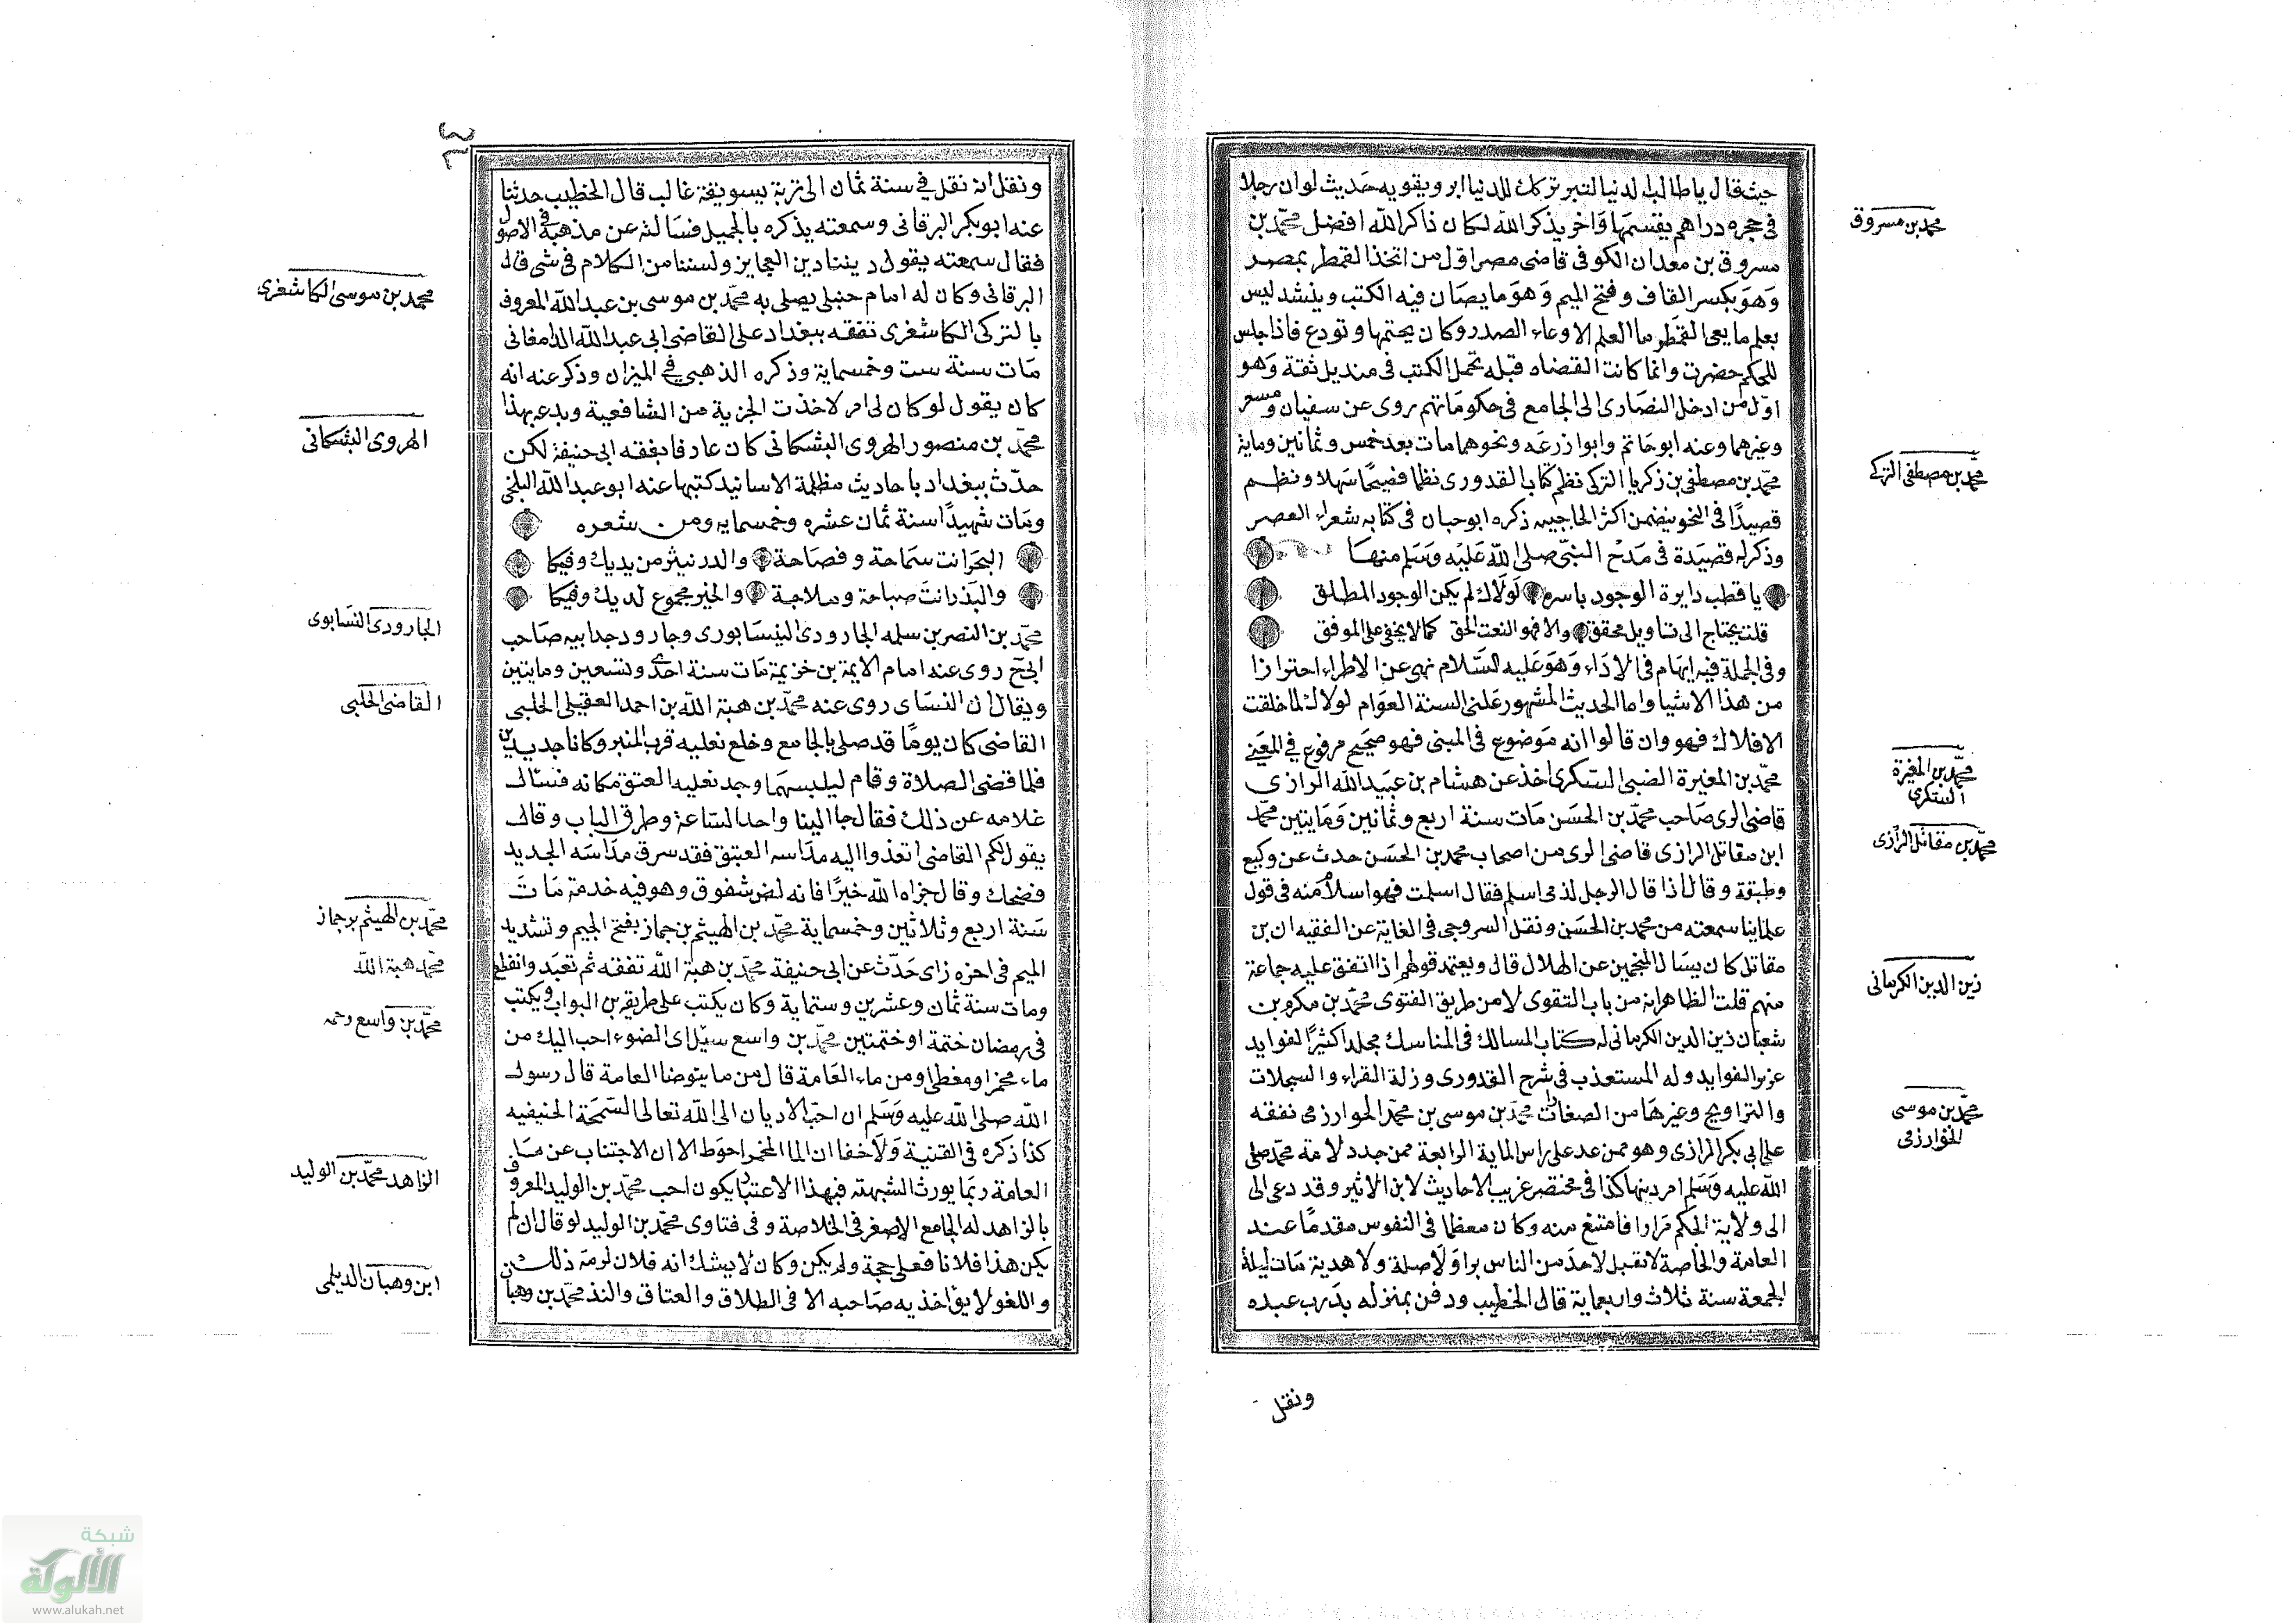 حيث قال يا طالب الدنيا لتبر تركك للدنيا ابر ويقويه حديث لو ان رجلا
في حجره دراهم يقسمها وآخر يذكر الله لكان ذاكر الله افضل محمد بن
مسروق بن معدان الكوفي قاضي مصر اول من اتخذ القمطر بمصر
وهو بكسر القاف وفتح الميم وهو ما يصان فيه الكتب وينشد ليس
بعلم ما يعي القمطر ما العلم الا وعاء الصدر وكان يختمها وتودع فاذا جلس
للحكم حضرت وانما كانت القضاه قبله تحمل الكتب في منديل ثقة وهو
اول من ادخل النصارى الى الجامع في حكوماتهم روى عن سفيان ومسعر
وغيرهما وعنه ابو حاتم وابوا زرعه ونحوهما مات بعد خمس وثمانين وماية
محمد بن مصطفى بن زكريا التركي نظم كتاب القدوري نظما فصيحا سهلا ونظم
قصيدا في النحو يتضمن اكثر الحاجبيه ذكره ابو حيان في كتابه شعراء العصر
وذكر له قصيدة في مدح النبي صلى الله عليه وسلم منها
يا قطب دايرة الوجود باسره لولاك لم يكن الوجود المطلق
قلت يحتاج الى تاويل محقق والا فهو النعت الحق كما لا يخفى على الموفق
وفي الجملة فيه ايهام في الاداء وهو عليه السلام نهى عن الاطراء احترازا
من هذا الاشيا واما الحديث المشهور على السنة العوام لولاك لما خلقت
الافلاك فهو وان قالوا انه موضوع في المبنى فهو صحيح مرفوع في المعنى
محمد بن المغيرة الضبي السكري اخذ عن هشام بن عبيد الله الرازي
قاضي الري صاحب محمد بن الحسن مات سنة اربع وثمانين ومايتين محمد
ابن مقاتل الرازي قاضي الري من اصحاب محمد بن الحسن حدث عن وكيع
وطبقته وقال اذا قال الرجل لذمي اسلم فقال اسلمت فهو اسلام منه في قول
علماينا سمعته من محمد بن الحسن ونقل السروجي في الغاية عن الفقيه ان بن
مقاتل كان يسال المنجمين عن الهلال قال ويعتمد قولهم اذا اتفق عليه جماعة
منهم قلت الظاهر انه من باب التقوى لا من طريق الفتوى محمد بن مكرم بن
شعبان زين الدين الكرماني له كتاب المسالك في المناسك مجلد اكثيرا لفوايد
عزيز الفوايد وله المستعذب في شرح القدوري وزلة القراء والسجلات
والتراويح وغيرها من الصغار محمد بن موسى بن محمد الخوارزمي تفقه
على ابي بكر الرازي وهو ممن عد على راس الماية الرابعة ممن جدد لامة محمد صلى
الله عليه وسلم امر دينها كذا في مختصر غريب الاحاديث لابن الاثير وقد دعى الى
الى ولاية الحكم مرارا فامتنع منه وكان معظما في النفوس مقدما عند
العامة والخاصة لا تقبل لاحد من الناس برا ولا صلة ولا هدية مات ليلة
الجمعة سنة ثلاث واربعماية قال الخطيب ودفن بمنزله بدرب عبده
ونقل
محمد بن مسروق
محمد بن مصطفى التركي
محمد بن المغيرة
السكري
محمد بن مقاتل الرازي
زين الدين الكرماني
محمد بن موسى
الخوارزمي
ونقل انه نقل في سنة ثمان الى تربة بسويقة غالب قال الخطيب حدثنا
عنه ابو بكر البرقاني وسمعته يذكره بالجميل فسالته عن مذهبه في الاصول
فقال سمعته يقول ديننا دين العجايز ولسنا من الكلام في شي قال
البرقاني وكان له امام حنبلي يصلي به محمد بن موسى بن عبد الله المعروف
بالتركي الكاشغري تفقه ببغداد على القاضي ابي عبد الله الدامغاني
مات سنة ست وخمسماية وذكره الذهبي في الميزان وذكر عنه انه
كان يقول لو كان لي امر لاخذت الجزية من الشافعية وبدع بهذا
محمد بن منصور الهروي البشكاني كان عارفا بفقه ابي حنيفة لكن
حدث ببغداد باحاديث مظلمة الاسانيد كتبها عنه ابو عبد الله البلخي
ومات شهيدا سنة ثمان عشره وخمسمايه ومن شعره
البحر انت سماحة وفصاحة والدر نيثر من يديك وفيكا
والبدر انت صباحة وملاحة والخير مجموع لديك وفيكا
محمد بن النصر بن سلمه الجارودي النيسابوري وجارود جد ابيه صاحب
ابي ح روى عنه امام الايمة بن خزيمة مات سنة احدى وتسعين ومايتين
ويقال ان النساي روى عنه محمد بن هبة الله بن احمد العقيلي الحلبي
القاضي كان يوما قد صلى بالجامع وخلع نعليه قرب المنبر وكانا جديدين
فلما قضى الصلاة وقام ليلبسهما وجد نعليه العتق مكانه فسال
غلامه عن ذلك فقال جا الينا واحد الساعة وطرق الباب وقال
يقول لكم القاضي انفذوا اليه مداسه العتيق فقد سرق مداسه الجديد
فضحك وقال جزاه الله خيرا فانه لص شفوق وهو فيه خدمة مات
سنة اربع وثلاثين وخمسماية محمد بن الهيثم بن جماز بفتح الجيم وتشديد
الميم في اخره زاى حدث عن ابي حنيفة محمد بن هبة الله تفقه ثم تعبد وانقطع
ومات سنة ثمان وعشرين وستماية وكان يكتب على طريقة بن البواب ويكتب
في رمضان ختمة او ختمتين محمد بن واسع سيل اى الضوء احب اليك من
ماء مخمر او مغطى او من ماء العامة قال من ما يتوضا العامة قال رسول
الله صلى الله عليه وسلم ان احب الاديان الى الله تعالى السمحة الحنيفيه
كذا ذكره في القنية ولا خفا ان الما المخمر احوط الا ان الاجتناب عن ما
العامة ربما يورث الشبهته فبهذا الاعتبار يكون احب محمد بن الوليد المعروف
بالزاهد له الجامع الاصغر في الخلاصة وفي فتاوى محمد بن الوليد لو قال ان لم
يكن هذا فلانا فعلي حجة ولم يكن وكان لا يشك انه فلان لزمه ذلك
واللغو لا يؤاخذ به صاحبه الا في الطلاق والعتاق والنذ محمد بن وهبان
محمد بن موسى الكاشغري
الهروي البشكاني
الجارودي النسابوى
القاضي الحلبي
محمد بن الهيثم بن جماز
محمد هبة الله
محمد بن واسع رحمه
الزاهد محمد بن الوليد
ابن وهبان الديلمي
شبكة
الألوكة
www.alukah.net